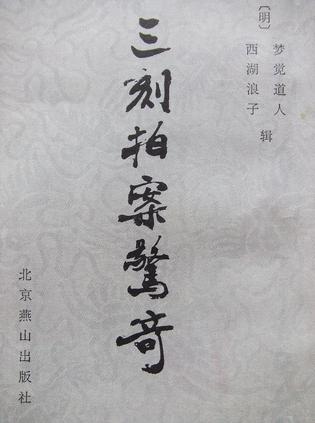 〔明〕
梦觉道人
西湖浪子 辑
三刻拍案驚奇
北京燕山出版社